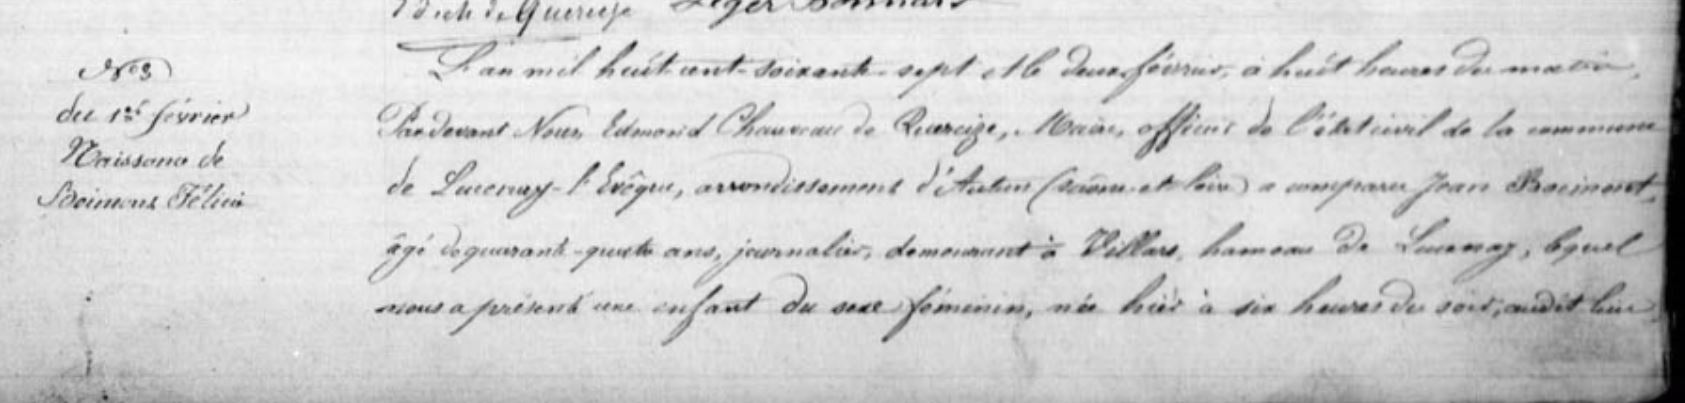 de Quercize Leger Bonnard
N° 3
du 1er février
Naissance de
Boimont Félicie
L'an mil huit cent soixante-sept et le deux février, à huit heures du matin,
Pardevant Nous Edmond Chauveau de Quercize, Maire, officier de l'état civil de la commune
de Lucenay-l'Evêque, arrondissement d'Autun (saône et loire) a comparu Jean Boeimont,
âgé de quarante-quatre ans, journalier, demeurant à Villars, hameau de Lucenay, lequel
nous a présenté une enfant du sexe féminin, née hier à six heures du soir, audit lieu,